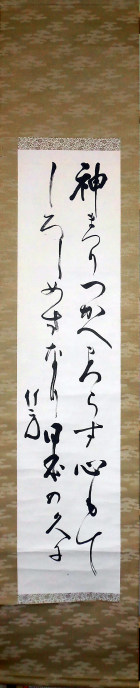 神まつりつかへまつらす心もて
しろしめすなり日本の久に